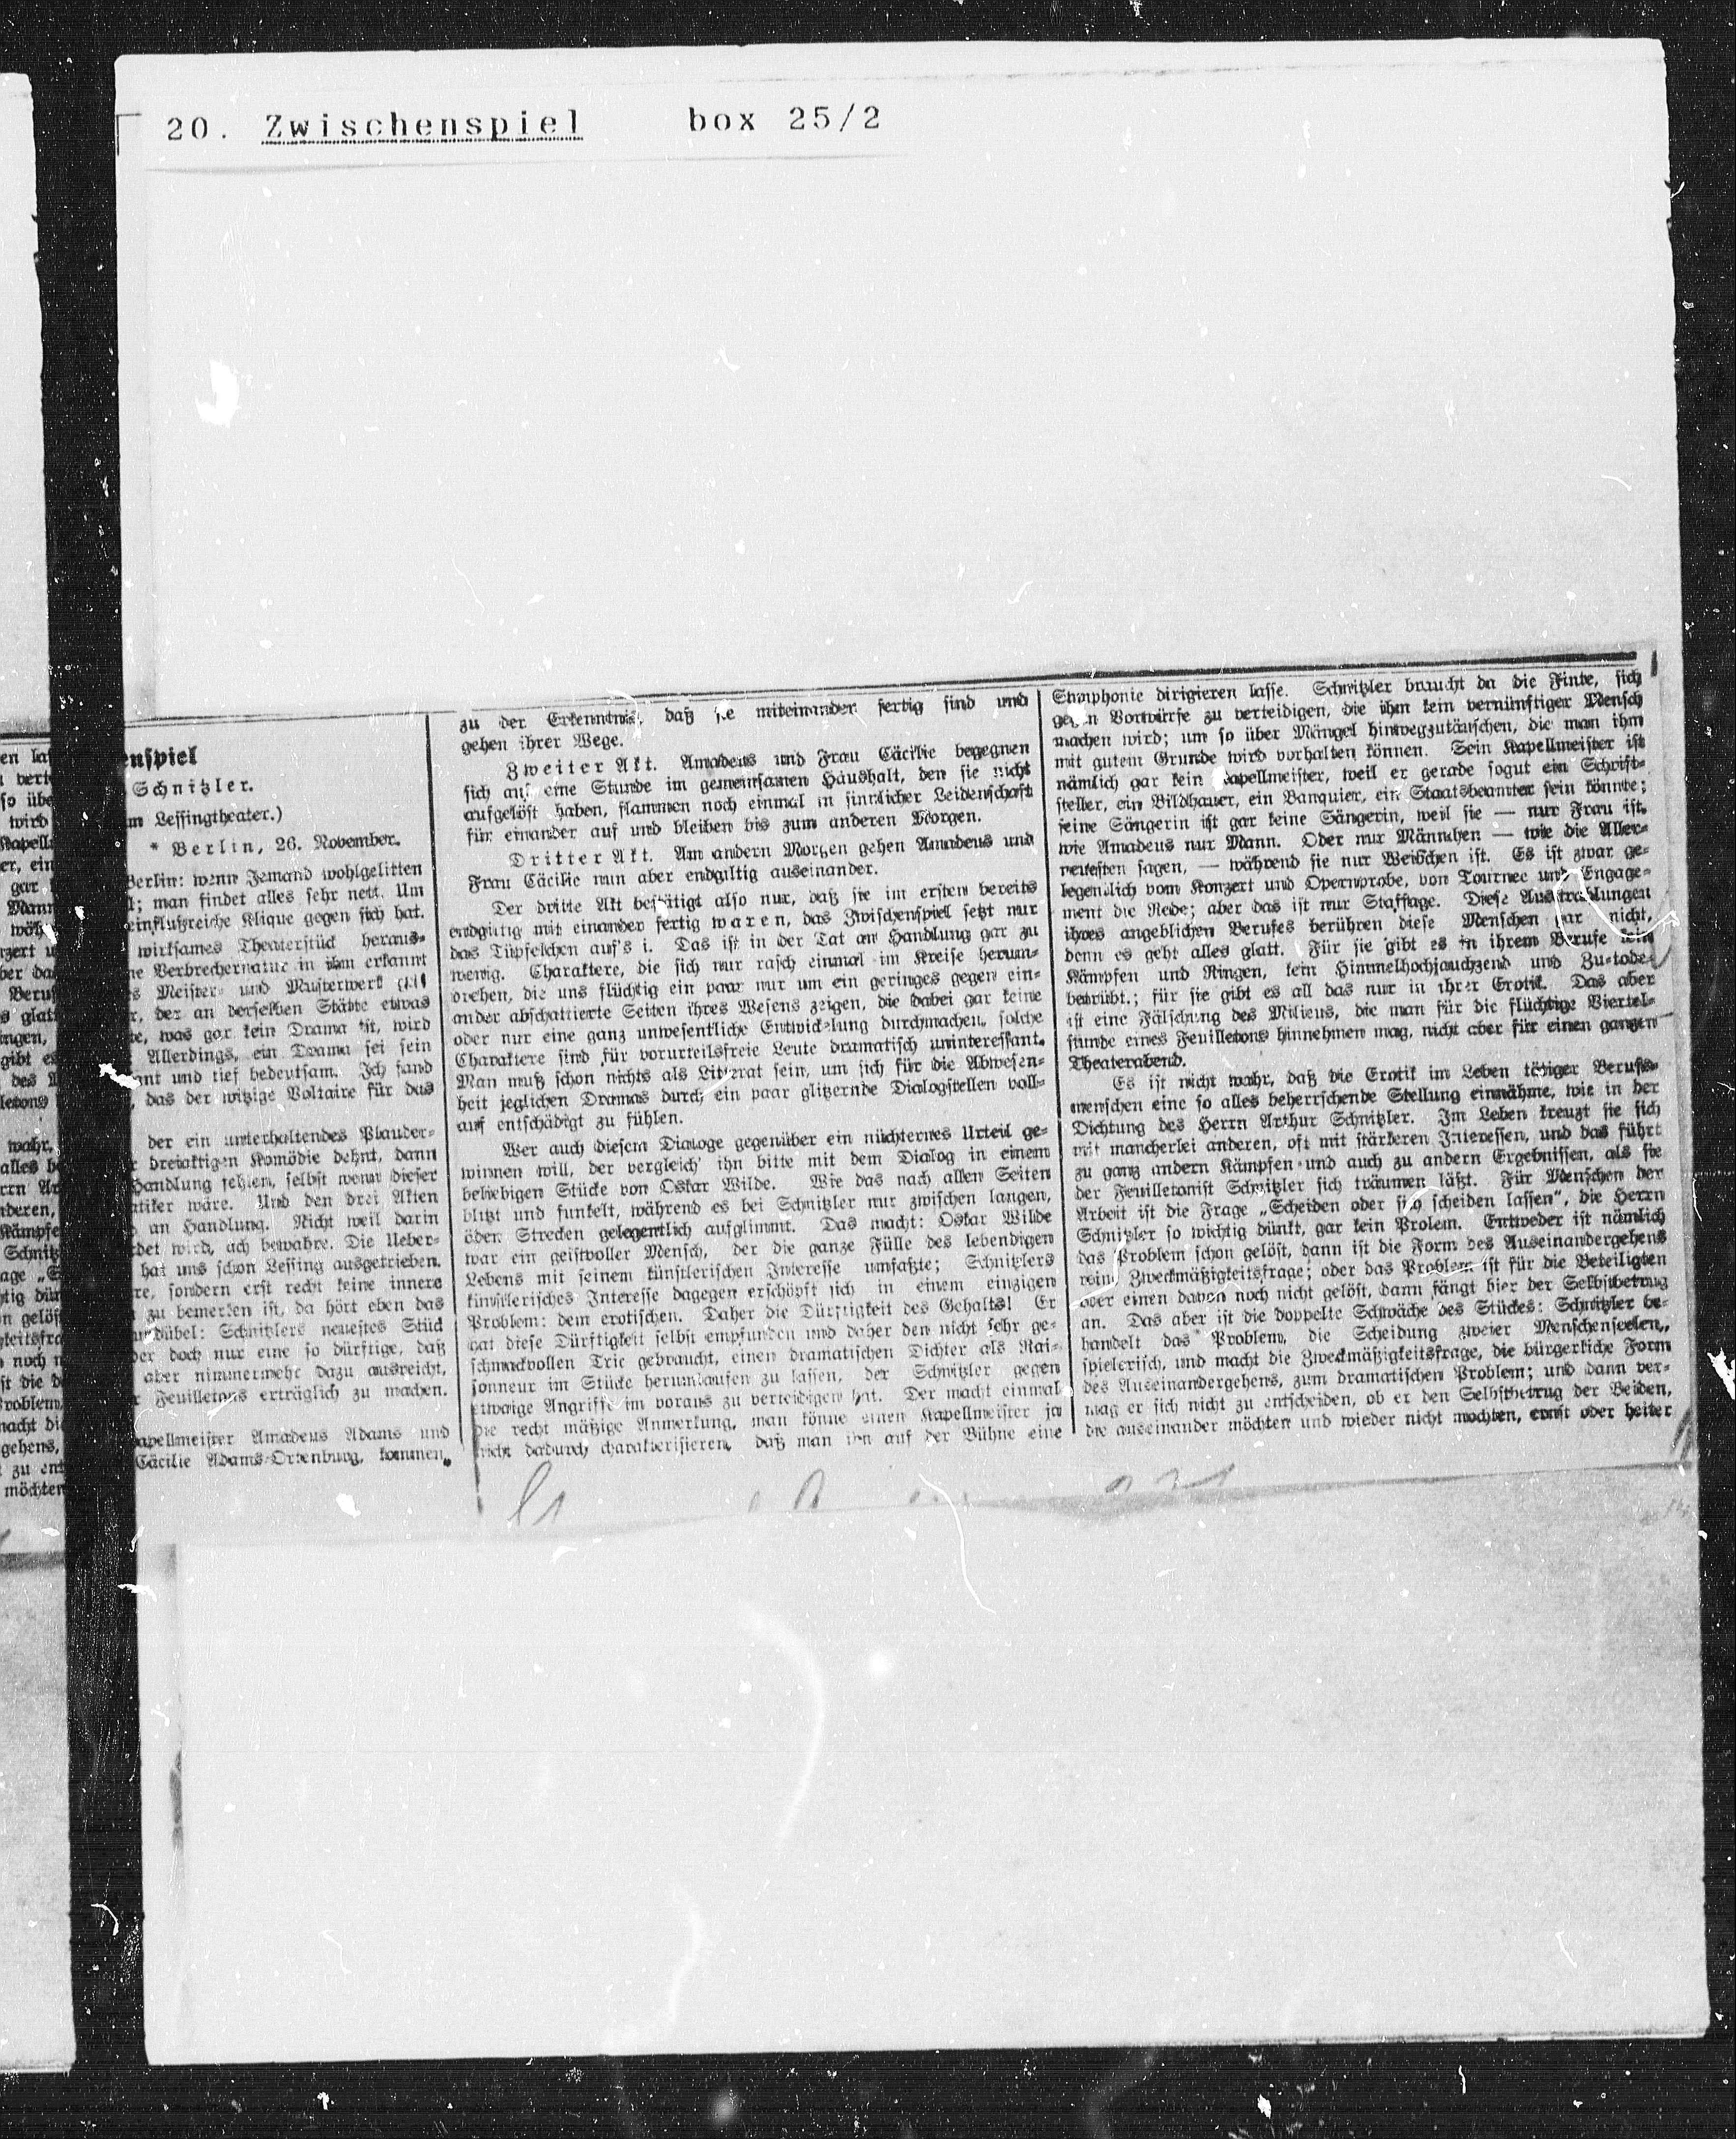 20. Zwischenspiel box 25/2
enspiel
Schnitzler.
m Lessingtheater.)
* Berlin, 26. November.
Berlin: wenn Jemand wohlgelitten
; man findet alles sehr nett. Um
einflußreiche Klique gegen sich hat.
wirksames Theaterstück heraus-
ne Verbrechernatur in ihm erkannt
s Meister- und Musterwerk gilt
r, der an derselben Stätte etwas
e, was gar kein Drama ist, wird
Allerdings, ein Drama sei sein
nt und tief bedeutsam. Ich fand
, das der witzige Voltaire für das
der ein unterhaltendes Plauder-
r dreiaktigen Komödie dehnt, dann
Handlung fehlen, selbst wenn dieser
atiker wäre. Und den drei Akten
an Handlung. Nicht weil darin
det wird, ach bewahre. Die Ueber-
hat uns schon Lessing ausgetrieben.
re, sondern erst recht keine innere
zu bemerken ist, da hört eben das
dübel: Schnitzlers neuestes Stück
der doch nur eine so dürftige, daß
aber nimmermehr dazu ausreicht,
r Feuilletons erträglich zu machen.
apellmeister Amadeus Adams und
Cäcilie Adams-Ortenburg, kommen
zu der Erkenntnis, daß sie miteinander fertig sind und
gehen ihrer Wege.
Zweiter Akt. Amadeus und Frau Cäcilie begegnen
sich auf eine Stunde im gemeinsamen Haushalt, den sie nicht
aufgelöst haben, flammen noch einmal in sinnlicher Leidenschaft
für einander auf und bleiben bis zum anderen Morgen.
Dritter Akt. Am andern Morgen gehen Amadeus und
Frau Cäcilie nun aber endgiltig auseinander.
Der dritte Akt bestätigt also nur, daß sie im ersten bereits
endgiltig mit einander fertig waren, das Zwischenspiel setzt nur
das Tüpfelchen auf's i. Das ist in der Tat an Handlung gar zu
wenig. Charaktere, die sich nur rasch einmal im Kreise herum-
drehen, die uns flüchtig ein paar nur um ein geringes gegen ein-
ander abschattierte Seiten ihres Wesens zeigen, die dabei gar keine
oder nur eine ganz unwesentliche Entwickelung durchmachen, solche
Charaktere sind für vorurteilsfreie Leute dramatisch uninteressant.
Man muß schon nichts als Litterat sein, um sich für die Abwesen-
heit jeglichen Dramas durch ein paar glitzernde Dialogstellen voll-
auf entschädigt zu fühlen.
Wer auch diesem Dialoge gegenüber ein nüchternes Urteil ge-
winnen will, der vergleich' ihn bitte mit dem Dialog in einem
beliebigen Stücke von Oskar Wilde. Wie das nach allen Seiten
blitzt und funkelt, während es bei Schnitzler nur zwischen langen,
öden Strecken gelegentlich aufglimmt. Das macht: Oskar Wilde
war ein geistvoller Mensch, der die ganze Fülle des lebendigen
Lebens mit seinem künstlerischen Interesse umfaßte; Schnitzlers
künstlerisches Interesse dagegen erschöpft sich in einem einzigen
Problem: dem erotischen. Daher die Dürftigkeit des Gehalts! Er
hat diese Dürftigkeit selbst empfunden und daher den nicht sehr ge-
schmackvollen Tric gebraucht, einen dramatischen Dichter als Rai-
sonneur im Stücke herumlaufen zu lassen, der Schnitzler gegen
etwaige Angriffe im voraus zu verteidigen hat. Der macht einmal
die recht mäßige Anmerkung, man könne einen Kapellmeister ja
nicht dadurch charakterisieren, daß man ihn auf der Bühne eine
Symphonie dirigieren lasse. Schnitzler braucht da die Finte, sich
gegen Vorwürfe zu verteidigen, die ihm kein vernünftiger Mensch
machen wird; um so über Mängel hinwegzutäuschen, die man ihm
mit gutem Grunde wird vorhalten können. Sein Kapellmeister ist
nämlich gar kein Kapellmeister, weil er gerade sogut ein Schrift-
steller, ein Bildhauer, ein Banquier, ein Staatsbeamter sein könnte;
seine Sängerin ist gar keine Sängerin, weil sie — nur Frau ist,
wie Amadeus nur Mann. Oder nur Männchen — wie die Aller-
neuesten sagen, — während sie nur Weibchen ist. Es ist zwar ge-
legentlich vom Konzert und Opernprobe, von Tournee und Engage-
ment die Rede; aber das ist nur Staffage. Diese Ausstrahlungen
ihres angeblichen Berufes berühren diese Menschen gar nicht,
denn es geht alles glatt. Für sie gibt es in ihrem Berufe kein
Kämpfen und Ringen, kein Himmelhochjauchzend und Zu-tode-
betrübt.; für sie gibt es all das nur in ihrer Erotik. Das aber
ist eine Fälschung des Milieus, die man für die flüchtige Viertel-
stunde eines Feuilletons hinnehmen mag, nicht aber für einen ganzen
Theaterabend.
Es ist nicht wahr, daß die Erotik im Leben tätiger Berufs-
menschen eine so alles beherrschende Stellung einnähme, wie in der
Dichtung des Herrn Arthur Schnitzler. Im Leben kreuzt sie sich
mit mancherlei anderen, oft mit stärkeren Interessen, und das führt
zu ganz andern Kämpfen und auch zu andern Ergebnissen, als sie
der Feuilletonist Schnitzler sich träumen läßt. Für Menschen der
Arbeit ist die Frage „Scheiden oder sich scheiden lassen“, die Herrn
Schnitzler so wichtig dünkt, gar kein Prolem. Entweder ist nämlich
das Problem schon gelöst, dann ist die Form des Auseinandergehens
reine Zweckmäßigkeitsfrage; oder das Problem ist für die Beteiligten
oder einen davon noch nicht gelöst, dann fängt hier der Selbstbetrug
an. Das aber ist die doppelte Schwäche des Stückes: Schnitzler be-
handelt das Problem, die Scheidung zweier Menschenseelen,
spielerisch, und macht die Zweckmäßigkeitsfrage, die bürgerliche Form
des Auseinandergehens, zum dramatischen Problem; und dann ver-
mag er sich nicht zu entscheiden, ob er den Selbstbetrug der Beiden,
die auseinander möchten und wieder nicht mochten, ernst oder heiter